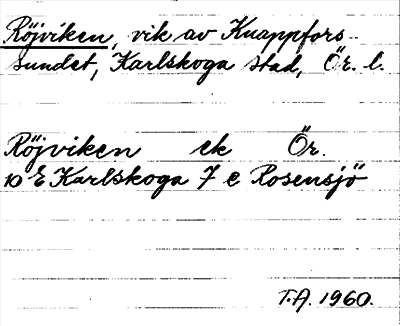 Röjviken, vik av Knappfors-
sundet, Karlskoga stad, Ör. l.
Röjviken ek Ör.
10 E Karlskoga 7 e Rosensjö
T.A. 1960.